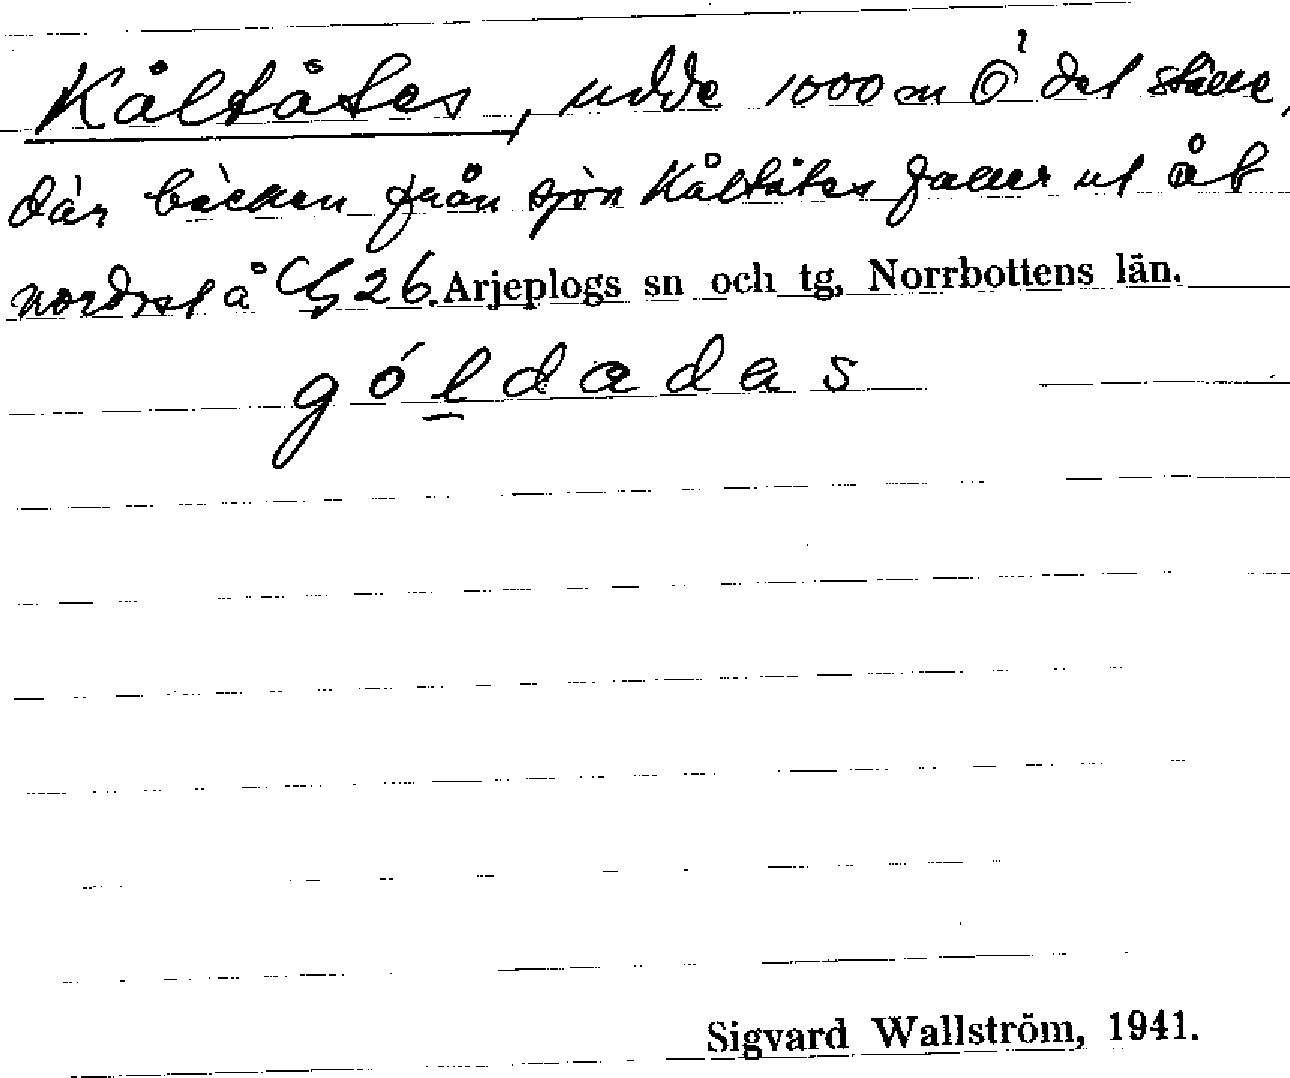 Kåltåtes, udde 1000 m Ö det ställe,
där bäcken från sjön Kåltåtes faller ut åt
nordost å 26. Arjeplogs sn och tg, Norrbottens län.
góldadas
Sigvard Wallström, 1941.